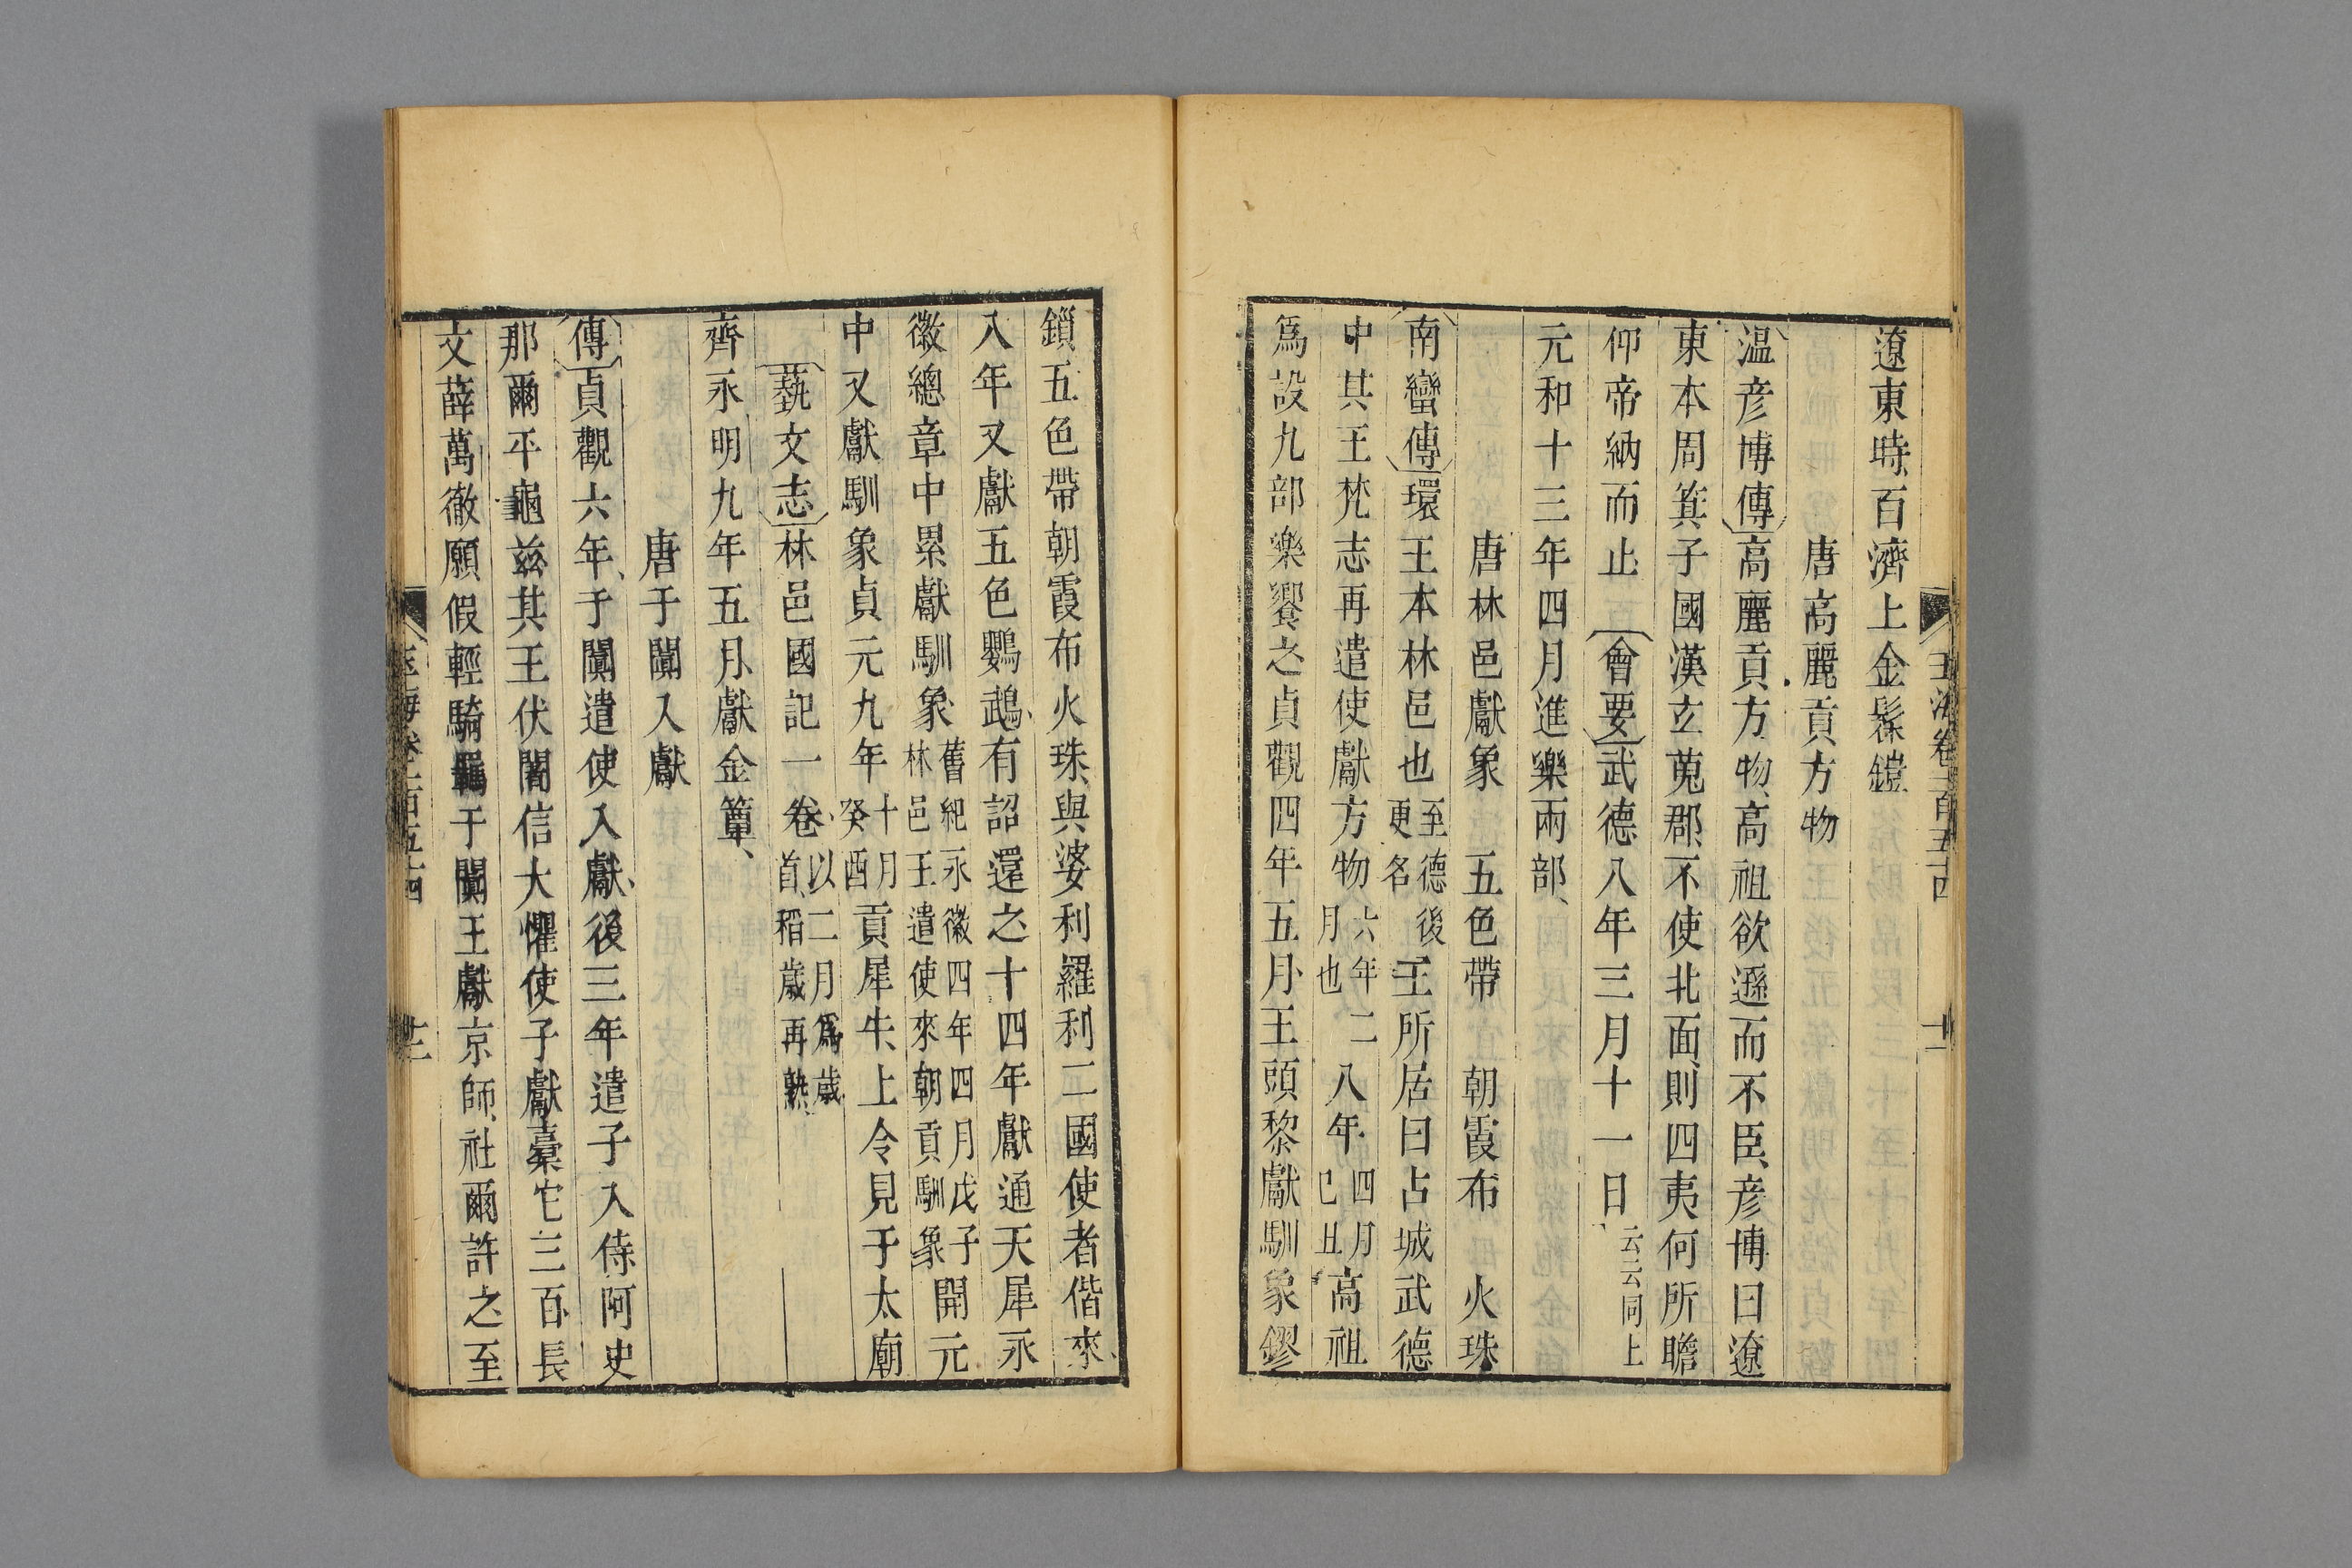 遼東時百濟上金髹鎧
唐高麗貢方物
温彦博傳高麗貢方物高祖欲遜而不臣彦博曰遼
東本周箕子國漢玄菟郡不使北面則四夷何所瞻
仰帝納而止會要武德八年三月十一日云云同上
元和十三年四月進樂兩部
唐林邑獻象 五色帶 朝霞布 火珠
南蠻傳環王本林邑也至德後更名王所居曰占城武德
中其王梵志再遣使獻方物六年二月也八年四月己丑高祖
爲設九部樂饗之貞觀四年五月王頭黎獻馴象鏐
鎖五色帶朝霞布火珠與婆利羅利二國使者偕來
八年又獻五色鸚鵡有詔還之十四年獻通天犀永
徽總章中累獻馴象舊紀永徽四年四月戊子林邑王遣使來朝貢馴象開元
中又獻馴象貞元九年十月癸酉貢犀牛上令見于太廟
藝文志林邑國記一卷以二月爲歲首稻歲再熟
齊永明九年五月獻金簟
唐于闐入獻
傳貞觀六年于闐遣使入獻後三年遣子入侍阿史
那爾平龜兹其王伏闍信大懼使子獻橐它三百長
文薛萬徹願假輕騎羈于闐王獻京師社爾許之至
玉海卷一百五十四
十二